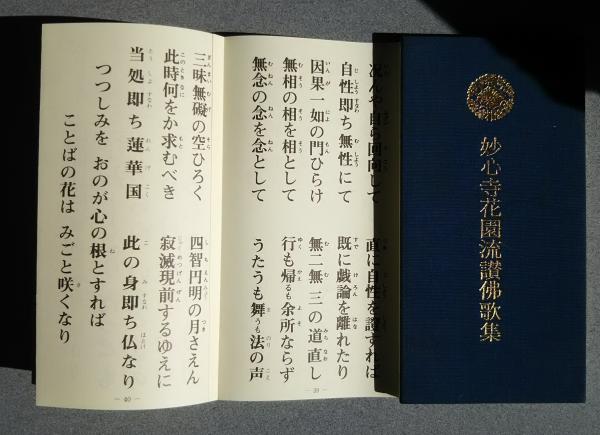 妙心寺花園流讃佛歌集
況んや自ら回向して　直に自性を證すれば
自性即ち無性にて　既に戯論を離れたり
因果一如の門ひらけ　無二無三の道直し
無相の相を相として　行も帰るも余所ならず
無念の念を念として　うたうも舞うも法の声
― 39 ―
三昧無礙の空ひろく　四智円明の月さえん
此時何をか求むべき　寂滅現前するゆえに
当処即ち蓮華国　此の身即ち仏なり
つつしみを おのが心の根とすれば
ことばの花は みごと咲くなり
― 40 ―